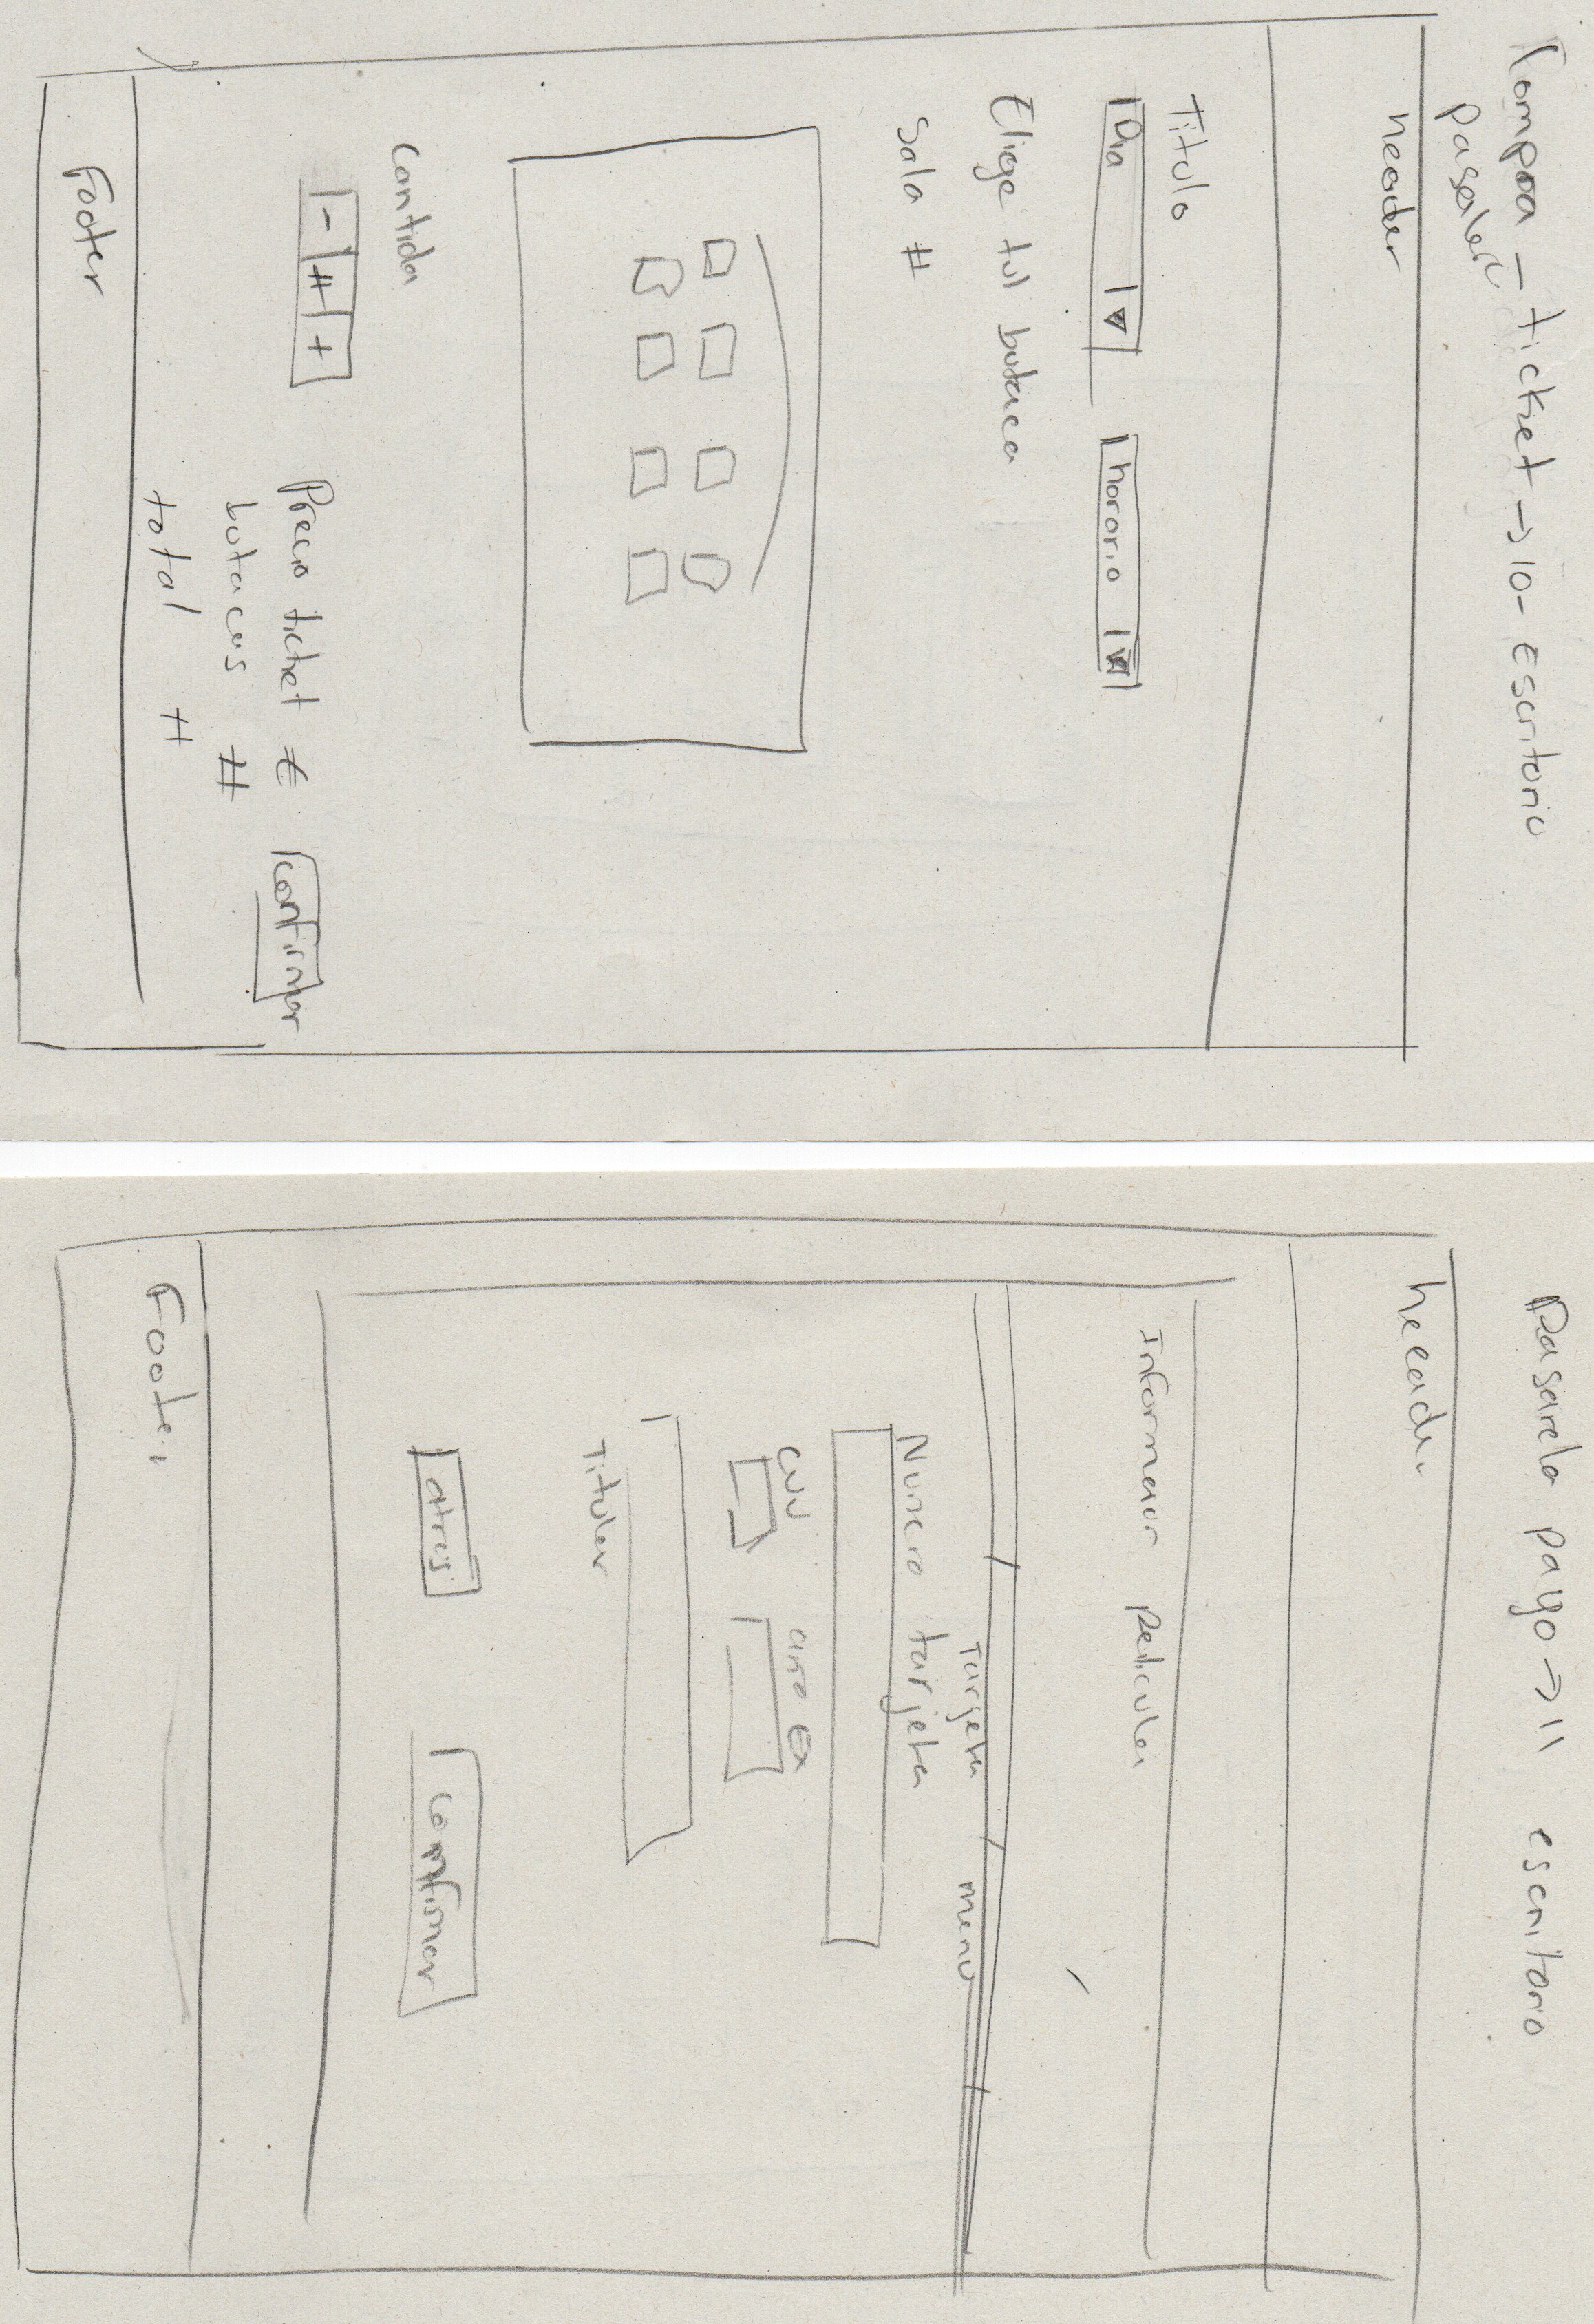 Compra - ticket → 10- Escritorio
header
Titulo
Dia
horario
Elige tu butaca
Sala #
Cantida
- # +
Precio ticket € confirmar
butacas #
total #
Footer
Pasarela pago → 11 escritorio
header
Informacion pelicula
Tarjeta menu
Numero tarjeta
CVV año Ex
Titular
atras confirmar
Footer